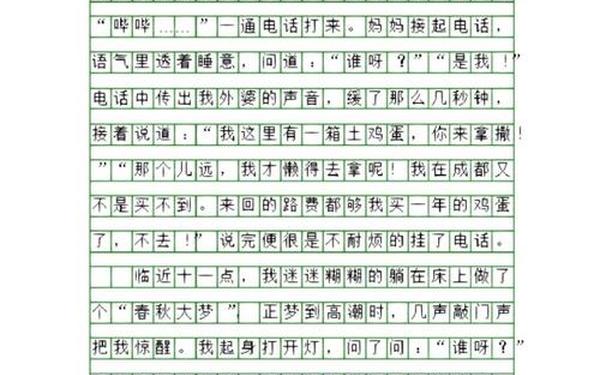 “哔哔……”一通电话打来。妈妈接起电话，
语气里透着睡意，问道：“谁呀？”“是我！”
电话中传出我外婆的声音，缓了那么几秒钟，
接着说道：“我这里有一箱土鸡蛋，你来拿撒！
”“那个儿远，我才懒得去拿呢！我在成都又
不是买不到。来回的路费都够我买一年的鸡蛋
了，不去！”说完便很是不耐烦的挂了电话。
临近十一点，我迷迷糊糊的躺在床上做了
个“春秋大梦”正梦到高潮时，几声敲门声
把我惊醒。我起身打开灯，问了问：“谁呀？”